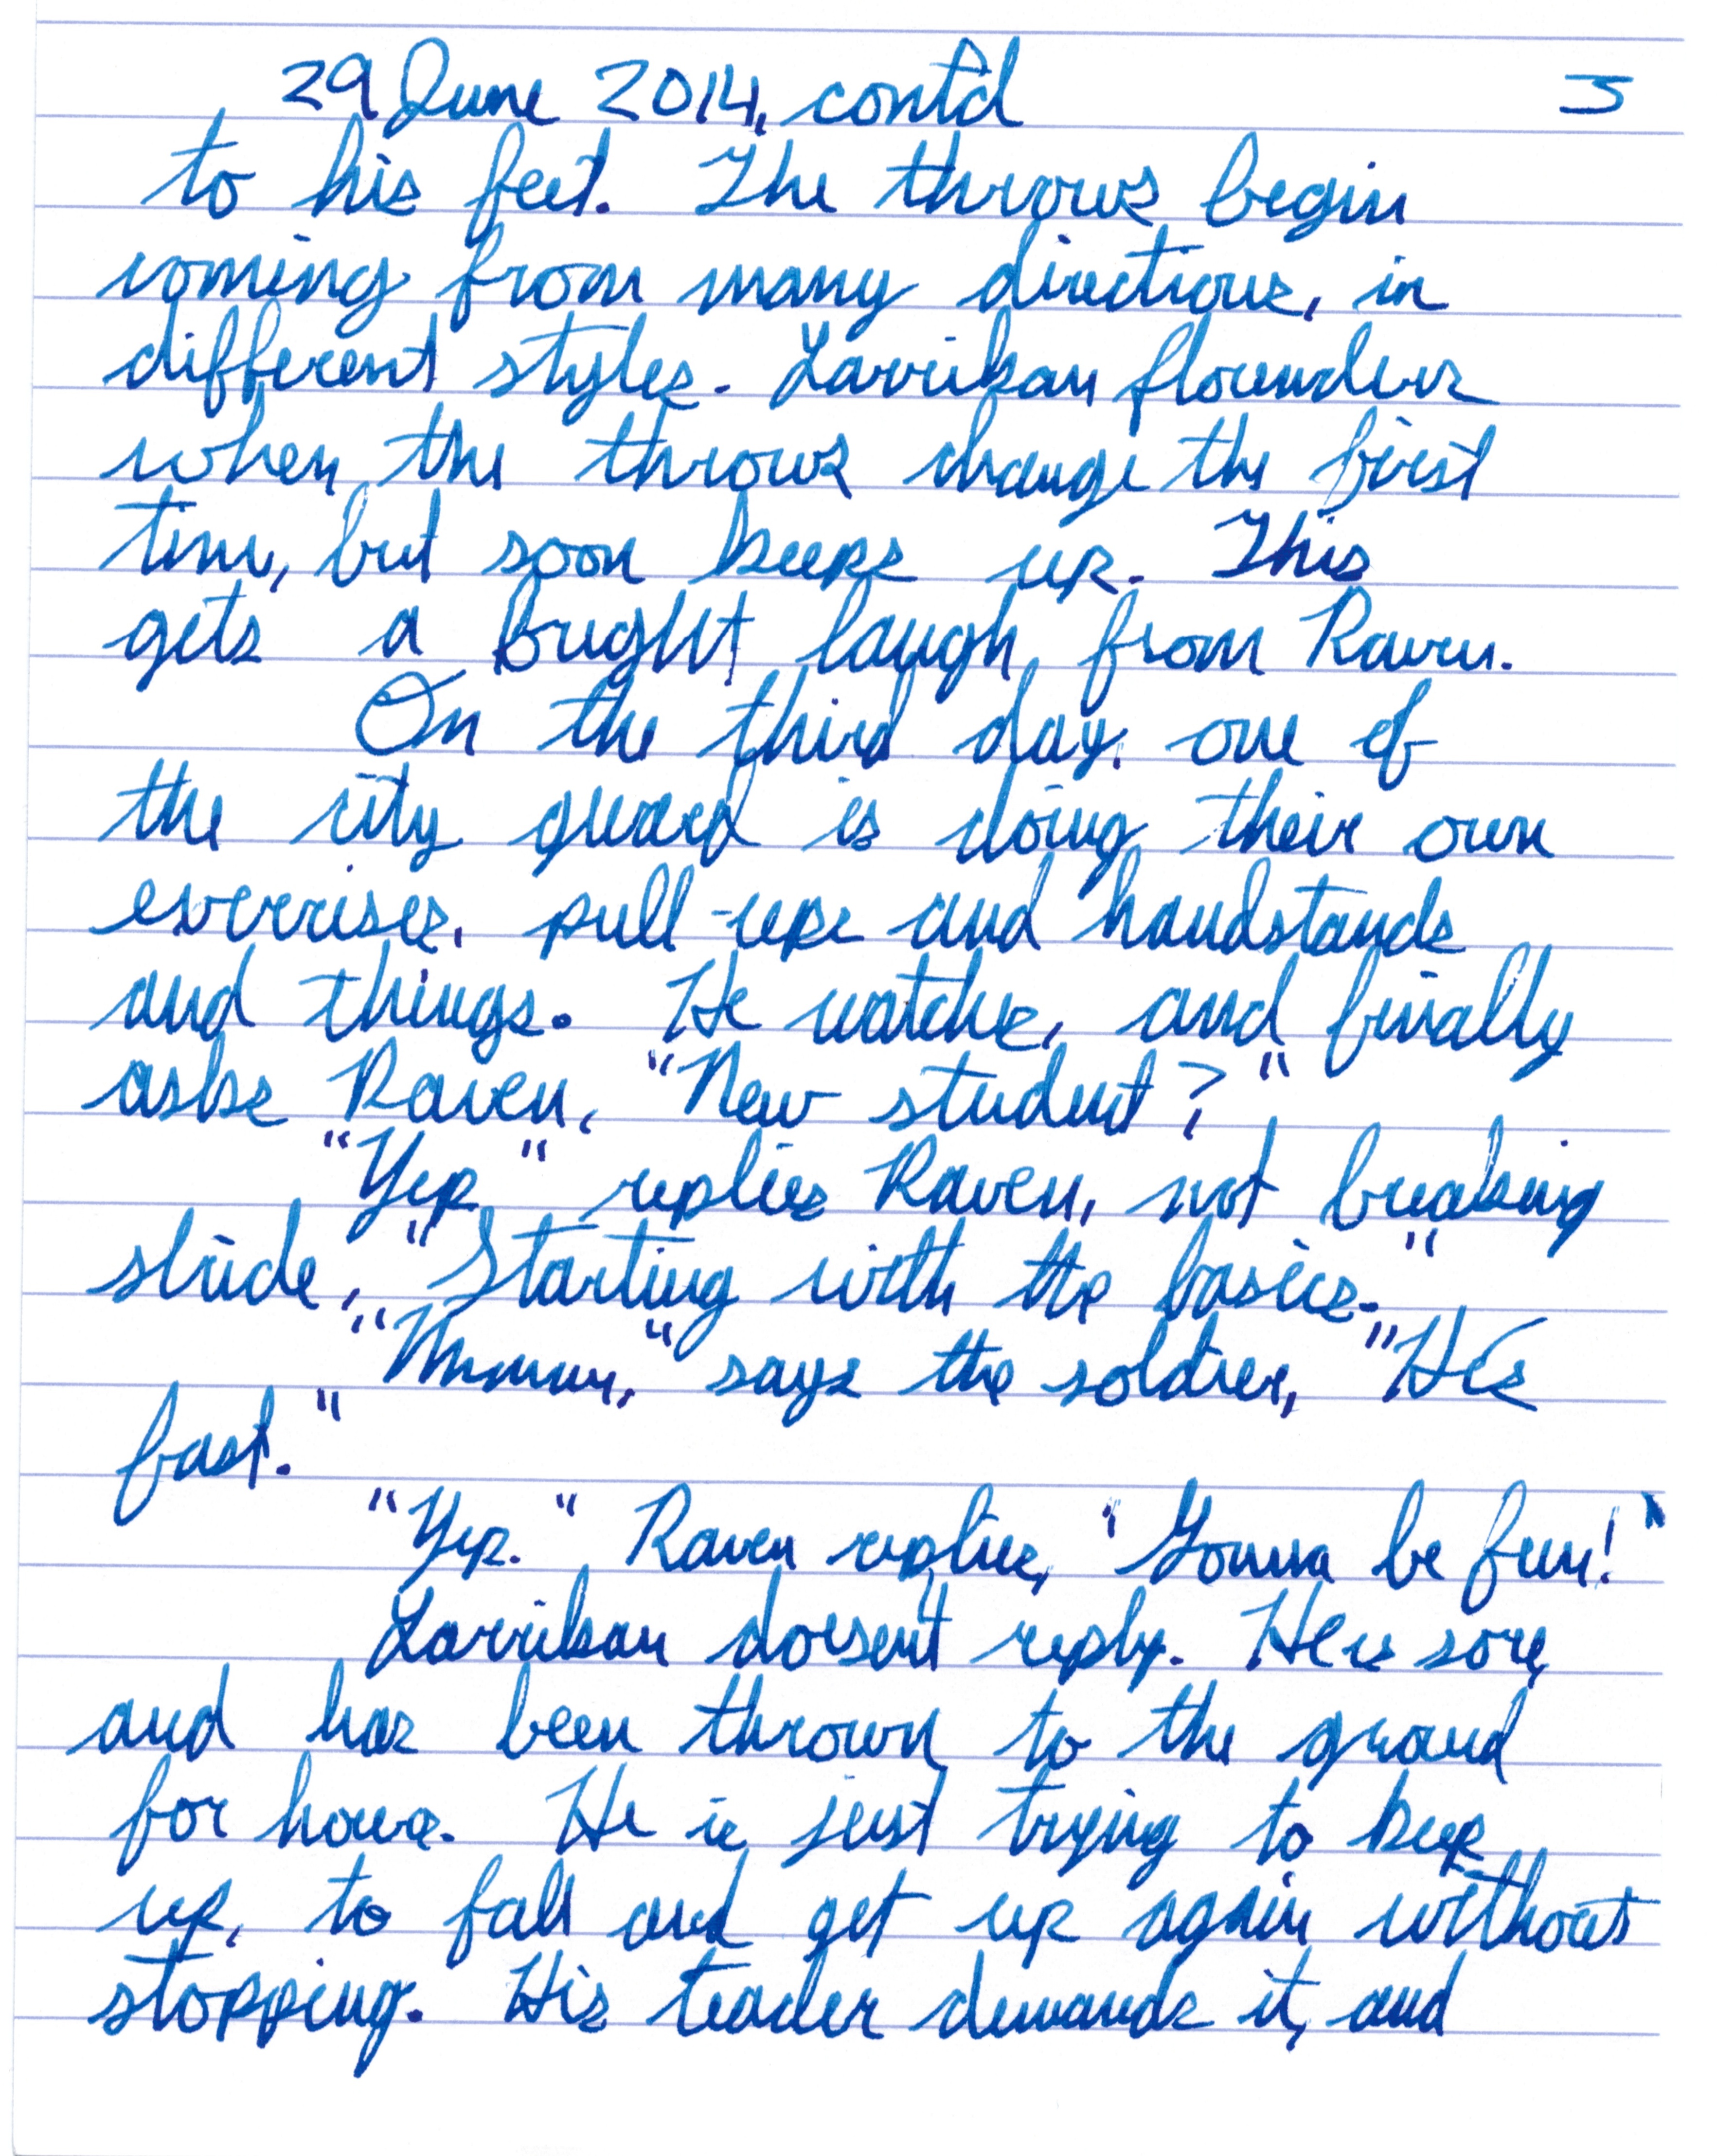 29 June 2014, contd 3
to his feet. The throws begin
coming from many directions, in
different styles. Larrikan flounders
when the throws change the first
time, but soon keeps up. This
gets a bright laugh from Raven.
On the third day, one of
the city guard is doing their own
exercises, pull-ups and handstands
and things. He watches, and finally
asks Raven, "New student?"
"Yep" replies Raven, not breaking
stride, "Starting with the basics."
"Mmmm," says the soldier, "He's
fast."
"Yep." Raven replies, "Gonna be fun!"
Larrikan doesn't reply. He is sore,
and has been thrown to the ground
for hours. He is just trying to keep
up, to fall and get up again without
stopping. His teacher demands it, and